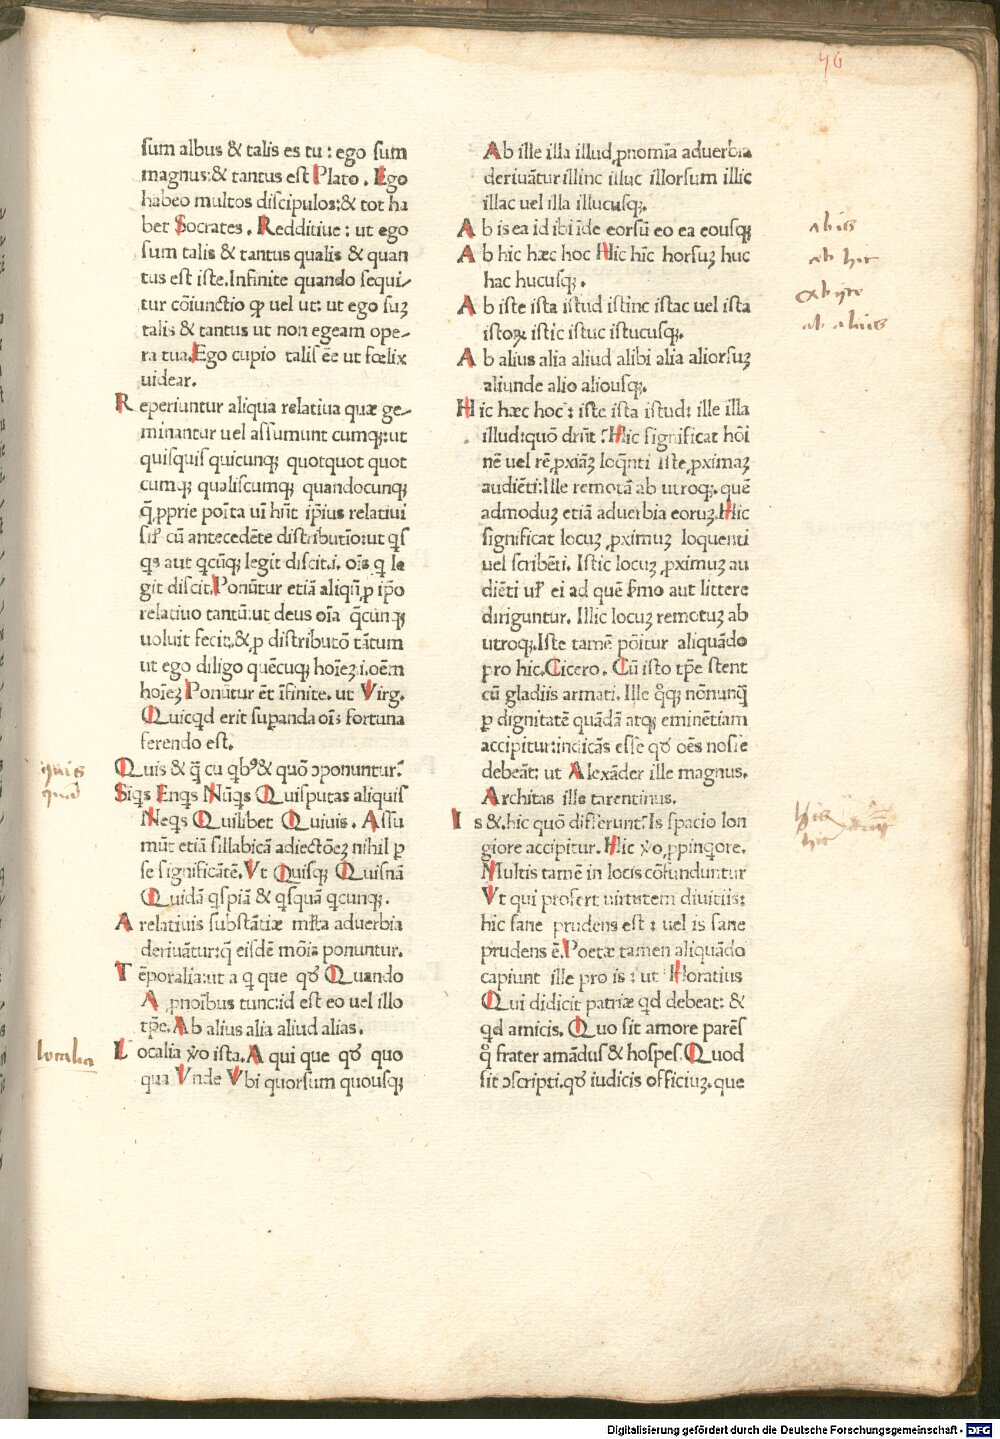 46
sum albus & talis es tu : ego sum
magnus:& tantus est Plato . Ego
habeo multos discipulos:& tot ha
bet Socrates . Redditiue : ut ego
sum talis & tantus qualis & quan
tus est iste.Infinite quando sequi⸗
tur cōiunctio ꝙ uel ut: ut ego suꝫ
talis & tantus ut non egeam ope⸗
ra tua.Ego cupio talis eē ut fœlix
uidear.
Reperiuntur aliqua relatiua quæ ge⸗
minantur uel assumunt cumqꝫ:ut
quisquis quicunqꝫ quotquot quot
cumqꝫ qualiscumqꝫ quandocunqꝫ
q̄ ꝓprie poīta uī hn̄t ip̄ius relatiui
cū antecedēte distributio:ut qs
qs aut qcūqꝫ legit discit.i. oīs q le
git discit.Ponūtur etiā aliqn̄ ꝑ ip̄o
relatiuo tantū:ut deus oīa q̄cunqꝫ
uoluit fecit.& ꝑ distributō tātum
ut ego diligo quēcuqꝫ hoīeꝫ.i.oēm
hoīeꝫ Ponūtur ēt īfinite. ut Virg.
Quicqd erit suꝑanda oīs fortuna
ferendo est.
Quis & q̄ cu qbꝰ& quō ↄponuntur.
Siqs Enqs Nūqs Quisputas aliquis
Neqs Quilibet Quiuis . Assu
mūt etiā sillabicā adiectōeꝫ nihil ꝑ
se significātē. Vt Quisqꝫ Quisnā
Quidā qspiā & qsquā qcunqꝫ.
A relatiuis substātiæ mlta aduerbia
deriuātur:q̄ eisdē mōis ponuntur.
Tēporalia:ut a q que qđ Quando
A ꝓnoībus tunc:id est eo uel illo
tp̄e. Ab alius alia aliud alias.
Localia v̊o ista. A qui que qđ quo
qua Vnde Vbi quorsum quousqꝫ
Ab ille illa illud ꝓnomīa aduerbia
deriuātur illinc illuc illorsum illic
illac uel illa illucusqꝫ.
Ab is ea id ibi īde eorsū eo ea eousqꝫ
Ab hic hæc hoc Hic hīc horsuꝫ huc
hac hucusqꝫ .
Ab iste ista istud istinc istac uel ista
istoꝝ istic istuc istucusqꝫ.
Ab alius alia aliud alibi alia aliorsuꝫ
aliunde alio aliousqꝫ.
Hic hæc hoc : iste ista istud: ille illa
illud:quō drn̄t : Hic significat hōi
nē uel rē ꝓxiāꝫ loqn̄ti iste ꝓximaꝫ
audiēti:Ille remotā ab utroqꝫ. quē
admoduꝫ etiā aduerbia eoruꝫ.Hic
significat locuꝫ ꝓximuꝫ loquenti
uel scribēti. Istic locuꝫ ꝓximuꝫ au
diēti ul ei ad quē s̄mo aut littere
diriguntur. Illic locuꝫ remotuꝫ ab
utroqꝫ.Iste tamē pōitur aliquādo
pro hic.Cicero . Cū isto tp̄e stent
cū gladiis armati. Ille qͦqꝫ nōnunq̄
ꝑ dignitatē quādā atqꝫ eminētiam
accipitur:indicās esse qđ oēs nosse
debeāt: ut Alexāder ille magnus.
Architas ille tarentinus.
Is &.hic quō differunt: Is spacio lon
giore accipitur. Hic v̊o ꝓpinqore.
Multis tamē in locis cōfunduntur
Vt qui profert uirtutem diuitiis:
hic sane prudens est : uel is sane
prudens ē.Poetæ tamen aliquādo
capiunt ille pro is : ut Horatius
Qui didicit patriæ qd debeat: &
qd amicis. Quo sit amore parēs
qͦ frater amādus & hospes.Quod
sit ↄscripti.qđ iudicis officiuꝫ.que
quis
localia
ab is
ab hic
ab iste
ab alius
Digitalisierung gefördert durch die Deutsche Forschungsgemeinschaft - DFG